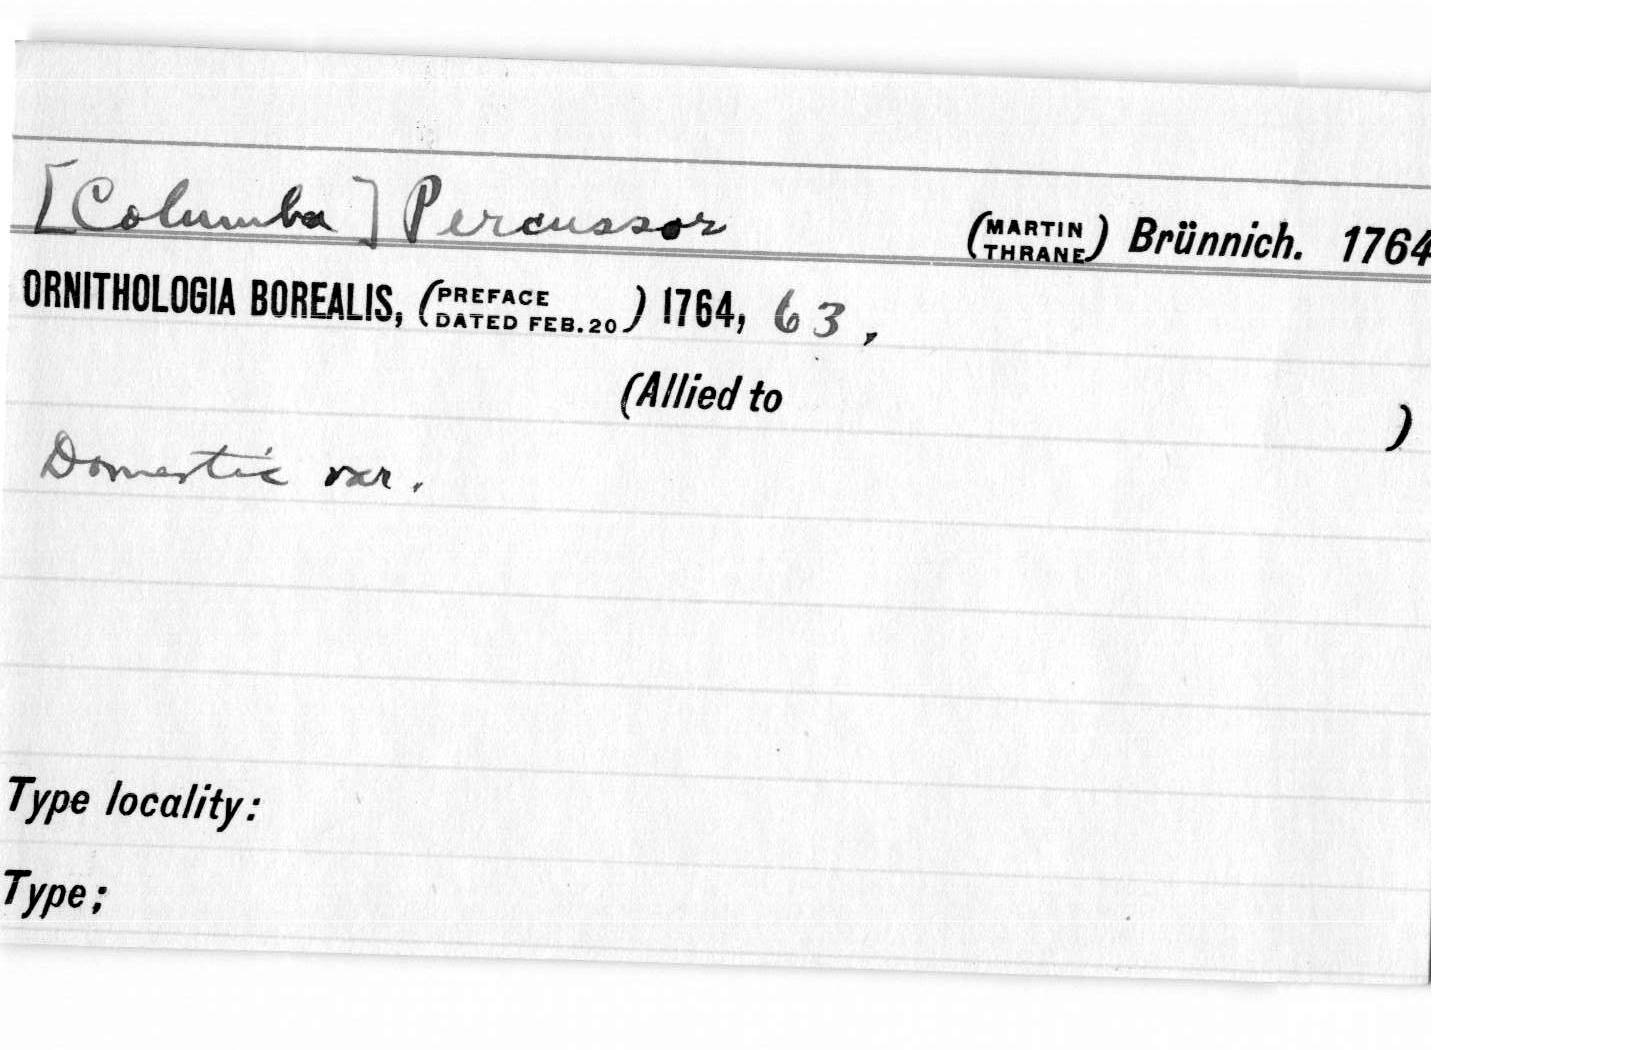 [Columba] Percussor (MARTIN THRANE) Brünnich. 1764
ORNITHOLOGIA BOREALIS, (PREFACE DATED FEB. 20) 1764, 63,
(Allied to )
Domestic var.
Type locality:
Type;